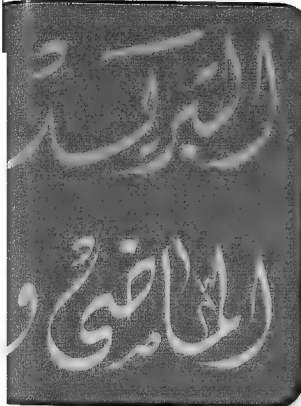 البريد
الماضي و